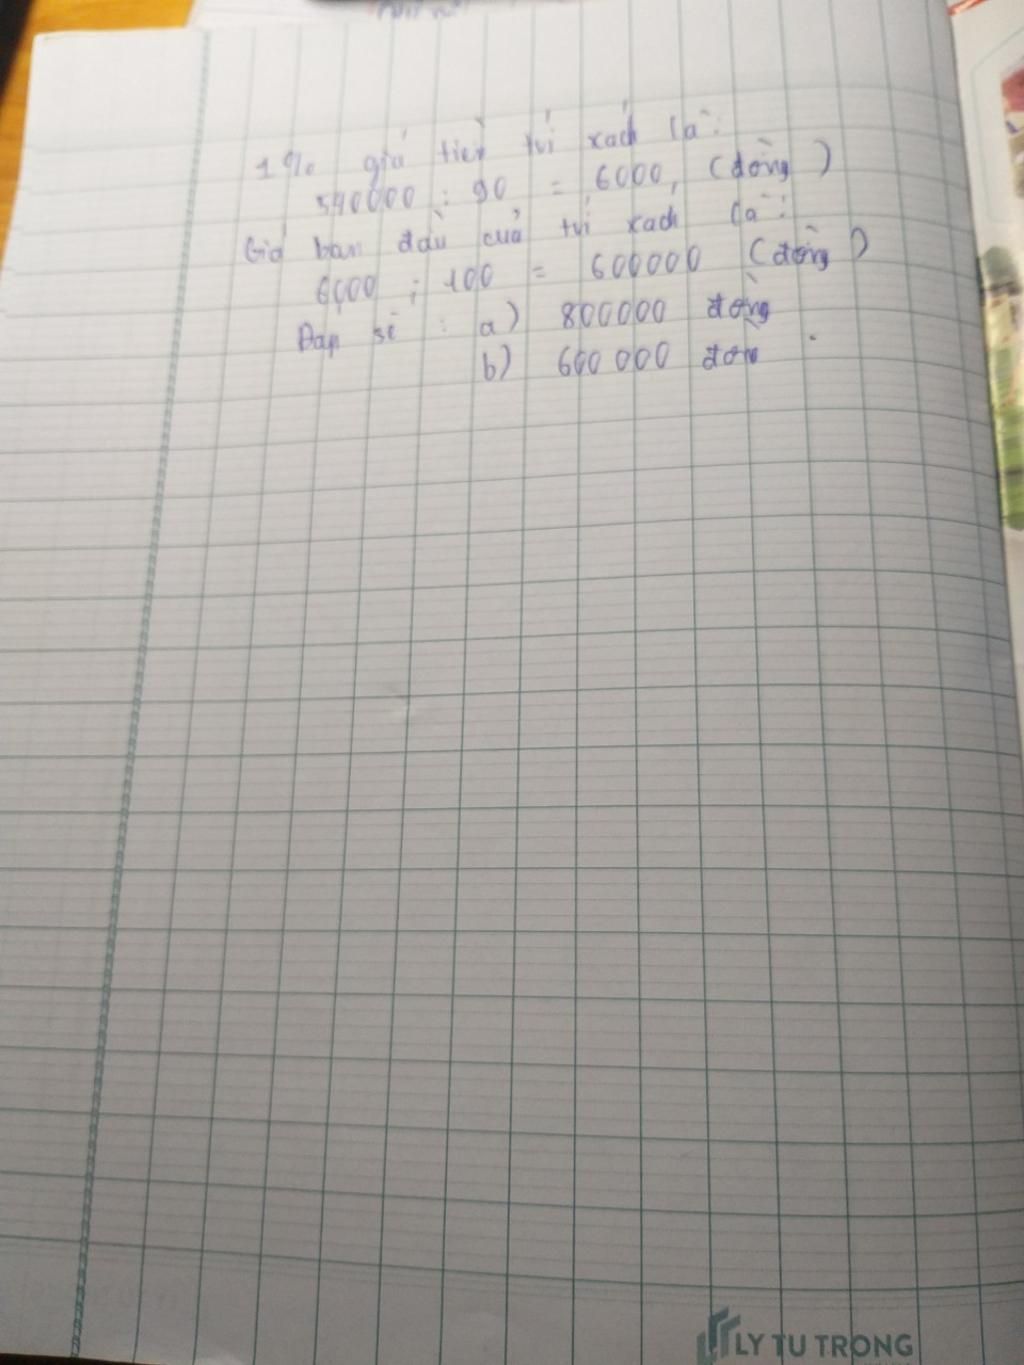 1% giá tiền túi xách là:
540000 : 90 = 6000, (đồng)
Giá ban đầu của túi xách là:
6000 : 100 = 600000 (đồng)
Đáp số : a) 800000 đồng
b) 600 000 đồn
LY TU TRONG